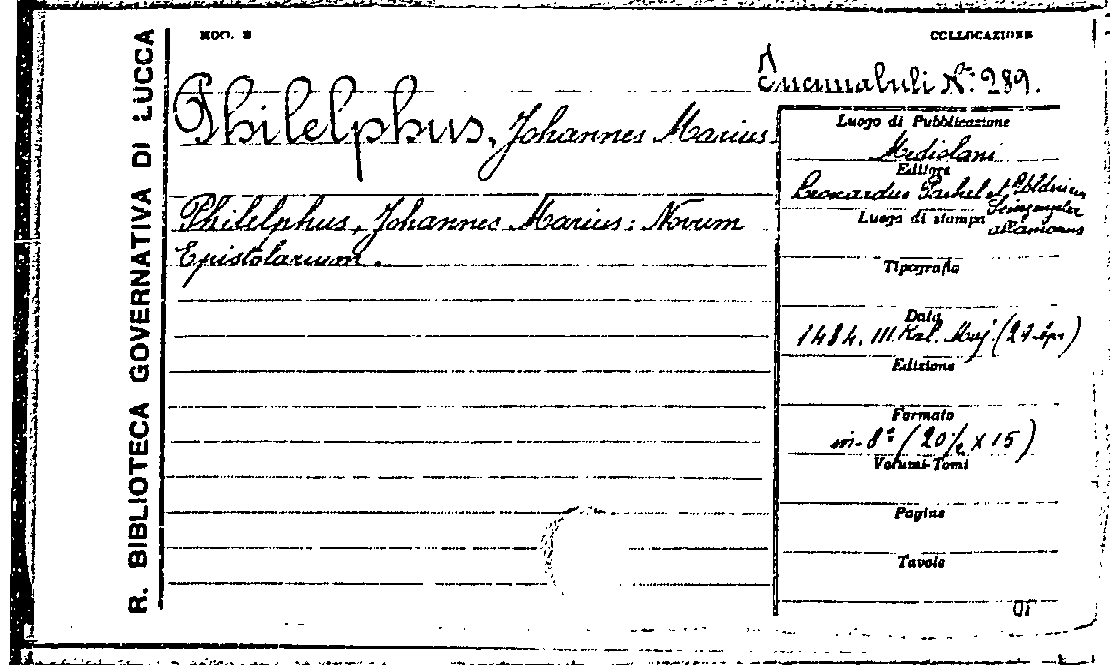 R. BIBLIOTECA GOVERNATIVA DI LUCCA
MOD. 2
COLLOCAZIONE
Incunabuli N.º 289.
Philelphus, Johannes Marius.
Philelphus, Johannes Marius: Novum
Epistolarium.
Luogo di Pubblicazione
Mediolani
Editore
Leonardus Pachel et Uldricus
Luogo di stampa
Tipografia
Data
1484. III. Kal. Maj. (29 Apr.)
Edizione
Formato
in-8º (20½ x 15)
Volumi-Tomi
Pagine
Tavole